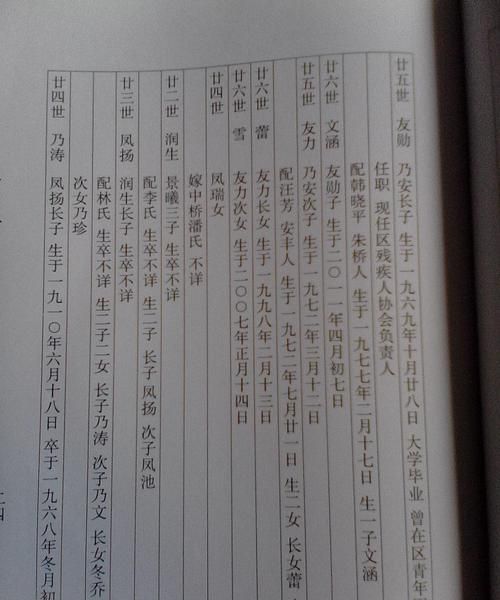 廿五世 友勋 乃安长子 生于一九六九年十月廿八日 大学毕业 曾在区青年
任职 现任区残疾人协会负责人
配韩晓平 朱桥人 生于一九七七年二月十七日 生一子文涵
廿六世 文涵 友勋子 生于二〇一一年四月初七日
廿五世 友力 乃安次子 生于一九七二年三月十二日
配汪芳 安丰人 生于一九七二年七月廿一日 生二女 长女蕾
廿六世 蕾 友力长女 生于一九九八年二月十三日
廿六世 雪 友力次女 生于二〇〇七年正月十四日
廿四世 凤瑞女
嫁中桥潘氏 不详
廿二世 润生 景曦三子 生卒不详
配李氏 生卒不详 生二子 长子凤扬 次子凤池
廿三世 凤扬 润生长子 生卒不详
配林氏 生卒不详 生二子二女 长子乃涛 次子乃文 长女冬乔
次女乃珍
廿四世 乃涛 凤扬长子 生于一九一〇年六月十八日 卒于一九六八年冬月初